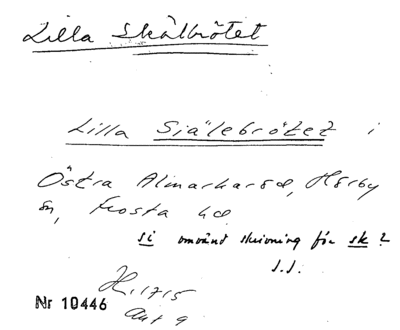 Lilla Skälbrötet
Lilla Siälebrötet i
Östra Almarharød, Hörby
sn, Frosta hd
si omvänd skrivning för sk?
S.S.
H. 1715
Akt 9
Nr 10446